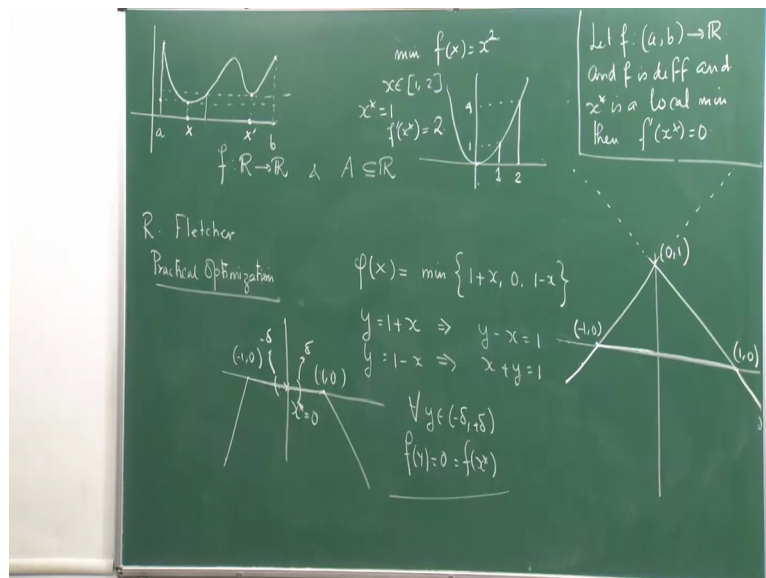 a x x' b
f: R→ℝ & A ⊆ ℝ
min f(x) = x²
x ∈ [1, 2]
x* = 1
f'(x*) = 2
4
1
1 2
Let f: (a, b) → ℝ
and f is diff and
x* is a local min
then f'(x*) = 0
R. Fletcher
Practical Optimization
φ(x) = min {1+x, 0, 1-x}
y = 1+x ⇒ y - x = 1
y = 1-x ⇒ x + y = 1
∀ y ∈ (-δ, +δ)
f(y) = 0 = f(x*)
-δ δ
(-1,0) (1,0)
x* = 0
(0,1)
(-1,0)
(1,0)